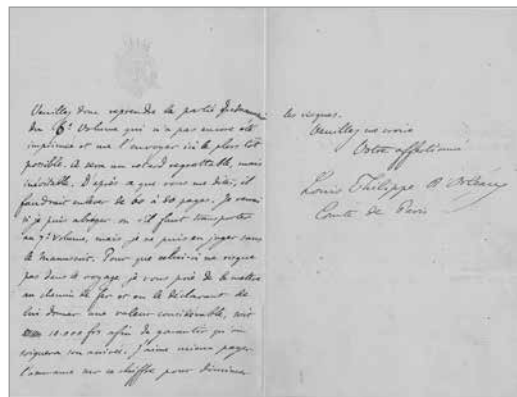 Veuillez donc reprendre la partie
du 6e Volume qui n'a pas encore été
imprimée et me l'envoyer ici le plus tôt
possible. Ce sera un retard regrettable, mais
inévitable. D'après ce que vous me dites, il
faudrait enlever de 60 à 80 pages. Je verrai
si je puis abréger ou s'il faut transporter
au 7e volume, mais je ne puis en juger sans
le manuscrit. Pour que celui-ci ne risque
pas dans le voyage je vous prie de le mettre
au chemin de fer et en le déclarant de
lui donner une valeur considérable, soit
10.000 frs afin de garantir qu'on
soignera son arrivée. J'aime mieux payer
sur ce chiffre pour diminuer
les risques.
Veuillez me croire
Votre affectionné
Louis Philippe d'Orléans
Comte de Paris